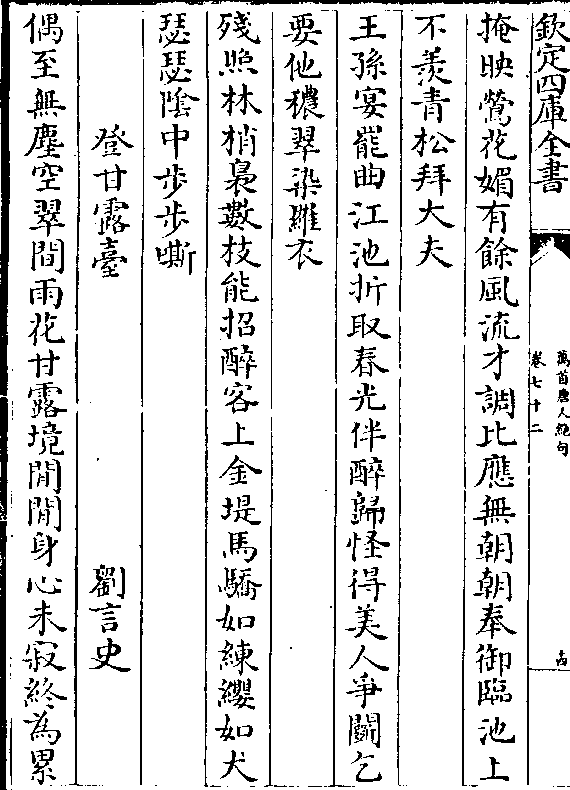 欽定四庫全書
萬首唐人絶句
卷七十二
古
掩映鶯花媚有餘風流才調比應無朝朝奉御臨池上
不羨青松拜大夫
王孫宴罷曲江池折取春光伴醉歸怪得美人爭鬬乞
要他穠翠染羅衣
殘照林梢裊數枝能招醉客上金堤馬驕如練纓如火
瑟瑟陰中步步嘶
登甘露臺
劉言史
偶至無塵空翠間雨花甘露境閒閒身心未寂終為累